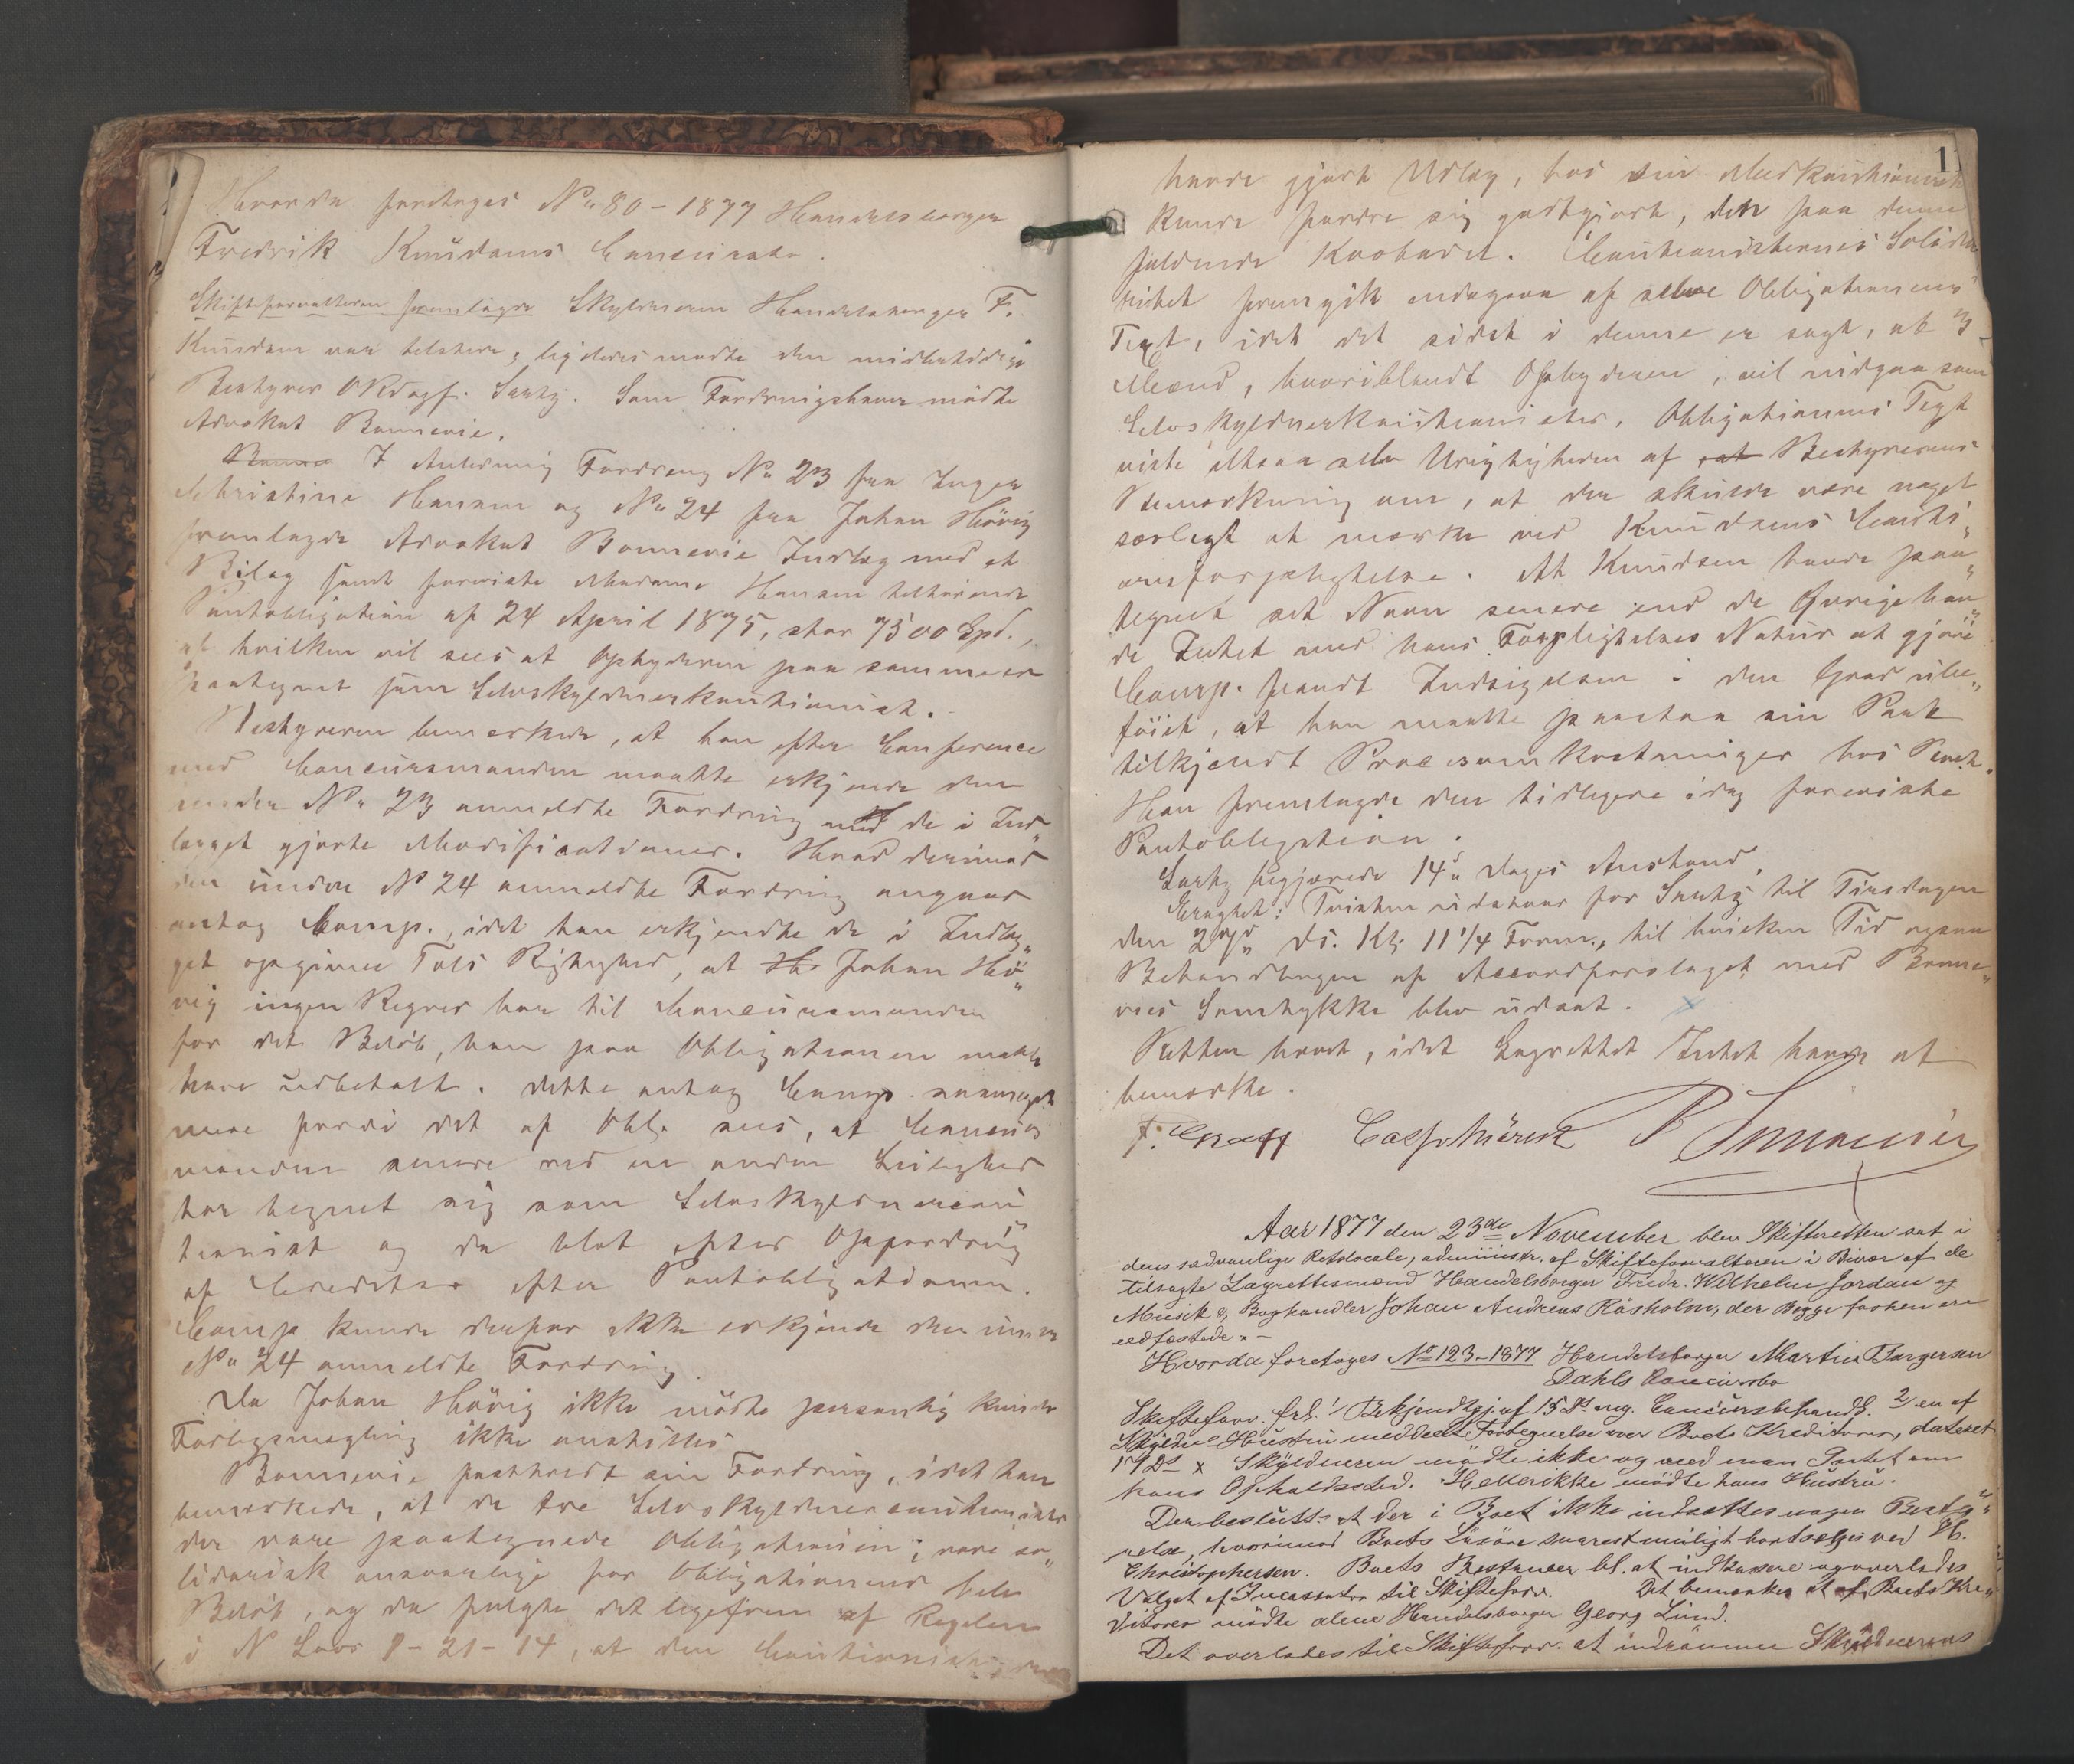 Hvorda foretoges No 80 - 1877 Handelsborger
Fredrik Knudsens Concursbo.
Skifteforvalteren fremlagde Skyldneren Handelsborger F.
Knudsen var tilstede, ligeledes mødte den midlertidige
Bestyrer ORdsagf. Som Fordringshaver mødte
Advokat Bonnevie.
I Anledning Fordring No 23 fra Inger
Christine Hansen og No 24 fra Johan Hövig
fremlagde Advokat Bonnevie Indlæg med et
Bilag samt foreviste Madame Hansen tilhørende
Pantobligation af 24 April 1875, stor 7500 Spd.,
af hvilken vil sees at Opbyderen paa samme er
paategnet som Selvskyldnerkautionist.
Bestyreren bemærkede, at han efter Conference
med Concursmanden maatte erkjende den
under No 23 anmeldte Fordring med de i Ind„
lægget gjorte Modificationer. Hvad derimod
den under No 24 anmeldte Fordring angaar
antog Comp., idet han erkjendte de i Indlæg„
get opgivne Tals Rigtighed, at Johan Hö„
vig ingen Regres har til Concursmanden
for det Beløb, han paa Obligationen maatte
have udbetalt. Dette antog Comp. saameget
mere fordi det af Obl. sees, at Concurs
manden senere ved en anden Leilighed
har tegnet sig som Selvskyldnercau„
tionist og da blot efter Opfordring
af Creditor efter Pantobligationen.
Comp kunde derfor ikke erkjende den under
No 24 anmeldte Fordring.
Da Johan Hövig ikke mödte personlig kunde
Forligsmegling ikke anstilles
Bonnevie fastholdt sin Fordring, idet han
bemærkede, at de tre Selvskyldnercautionister
der vare paategnede Obligationen, vare so„
lidarisk ansvarlige for Obligationens hele
Beløb, og da fulgte det ligefrem af Regelen
i N Lovs 1-21-14, at den Cautionist, der
1
havde gjort Udlæg, hos sin Medkautionist
kunde fordre sig godtgjort, den paa denne
faldende Kvotadel. Cautionisternes Solida
ritet fremgik endogsaa af selve Obligationens
Text, idet det sidst i denne er sagt, at 3
Mænd, hvoriblandt Opbyderen, vil indgaa som
Selvskyldnerkautionister. Obligationens Text
viste altsaa selv Urigtigheden af Bestyrerens
Bemærkning om, at der skulde være noget
særligt at mærke ved Knudsens Cauti„
onsforpligtelse. At Knudsen havde paa„
tegnet sit Navn senere end de Øvrige hav„
de Intet med hans Forpligtelses Natur at gjøre
Comp. fandt Indsigelsen i den Grad ube„
föiet, at han maatte paastaa sin Part
tilkjendt Procesomkostninger hos
Han fremlagde den tidligere idag foreviste
Pantobligation.
begjærede 14 Dages Anstand.
Eragtet: Tvisten udstaar for til Tirsdagen
den 27de ds. Kl. 11 1/4 Form., til hvilken Tid ogsaa
Behandlingen af Accordforslaget med Bonne„
vies Samtykke blev udsat.
Retten hævet, idet Lagrettet Intet havde at
bemærke.
Aar 1877 den 23de November blev Skifteretten sat i
dens sædvanlige Retslocale, administr. af Skifteforvalteren i Bivær af de
tilsagte Lagrettesmænd Handelsborger Fredr. Wilhelm Jordan og
Musik & Boghandler Johan Andreas Råsholm, der Begge forhen ere
edfæstede. -
Hvorda foretoges No 123-1877 Handelsborger Martin Torgersen
Dahls Concursbo
Skifteforv. frl. 1 Bekjendtgj. af 15 Ds ang. Concursbehandl. 2 en af
Skyldns Hustru meddelt Fortegnelse over Boets Kreditorer, dateret
17 Ds x Skyldneren mödte ikke og ved man Intet om
hans Opholdssted. Hellerikke mödte hans Hustru.
Der beslutts at der i Boet ikke indsættes nogen Besty„
relse, hvorimod Boets Lösöre snarestmuligt bortsælges ved H.
Christophersen. Boets Restancer bl. at indkassere og overlades
Valget af Incassator til Skifteforv. Det bemærkes at af Boets Kre„
ditorer mödte alene Handelsborger Georg Lund.
Det overlades til Skifteforv. at indrömme Skyldnerens